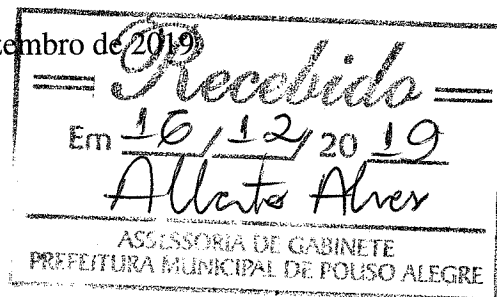 zembro de 2019
Recebido
Em 16/12/20 19
Alberto Alves
ASSESSORIA DE GABINETE
PREFEITURA MUNICIPAL DE POUSO ALEGRE